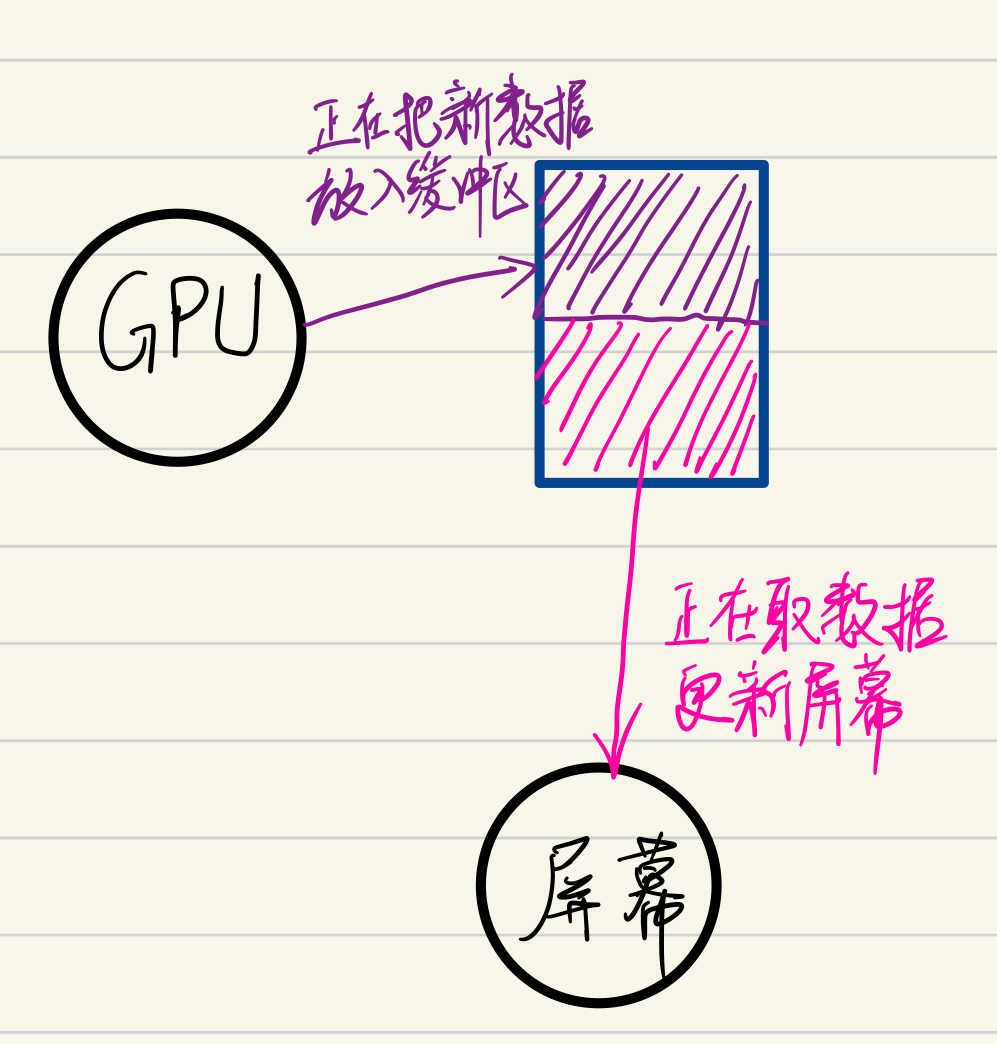 正在把新数据
放入缓冲区
GPU
正在取数据
更新屏幕
屏幕